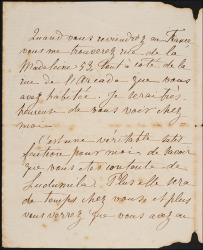 Quand vous reviendrez en France
vous me trouverez rue de la
Madeleine 53, tout à côté de la
rue de l'Arcade que vous
avez habitée. Je serai très
heureuse de vous voir chez
moi.
C'est une véritable satis
faction pour moi de savoir
que vous êtes contente de
Ludumila. Plus elle sera
de temps chez vous et plus
vous verrez que vous avez en